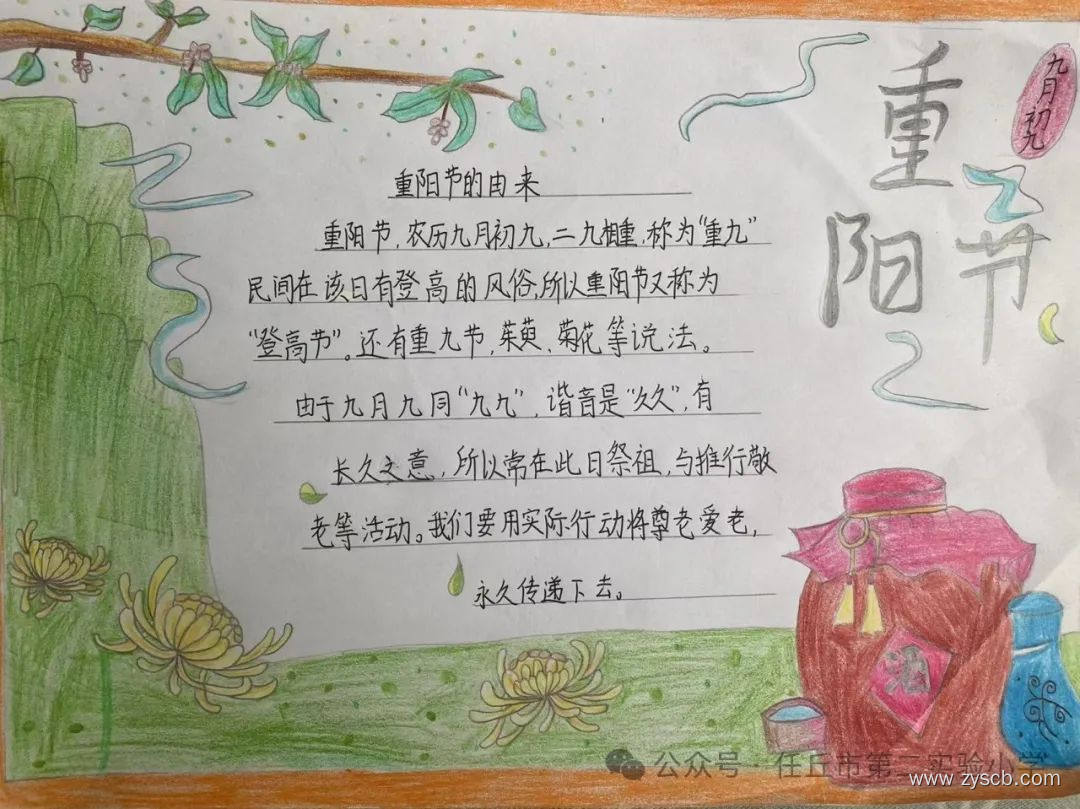 重阳节
九月初九
重阳节的由来
重阳节，农历九月初九，二九相重，称为“重九”
民间在该日有登高的风俗，所以重阳节又称为
“登高节”。还有重九节，茱萸、菊花等说法。
由于九月九同“九九”，谐音是“久久”，有
长久之意，所以常在此日祭祖，与推行敬
老等活动。我们要用实际行动将尊老爱老，
永久传递下去。
酒
公众号·任丘市第二实验小学
www.zyscb.com